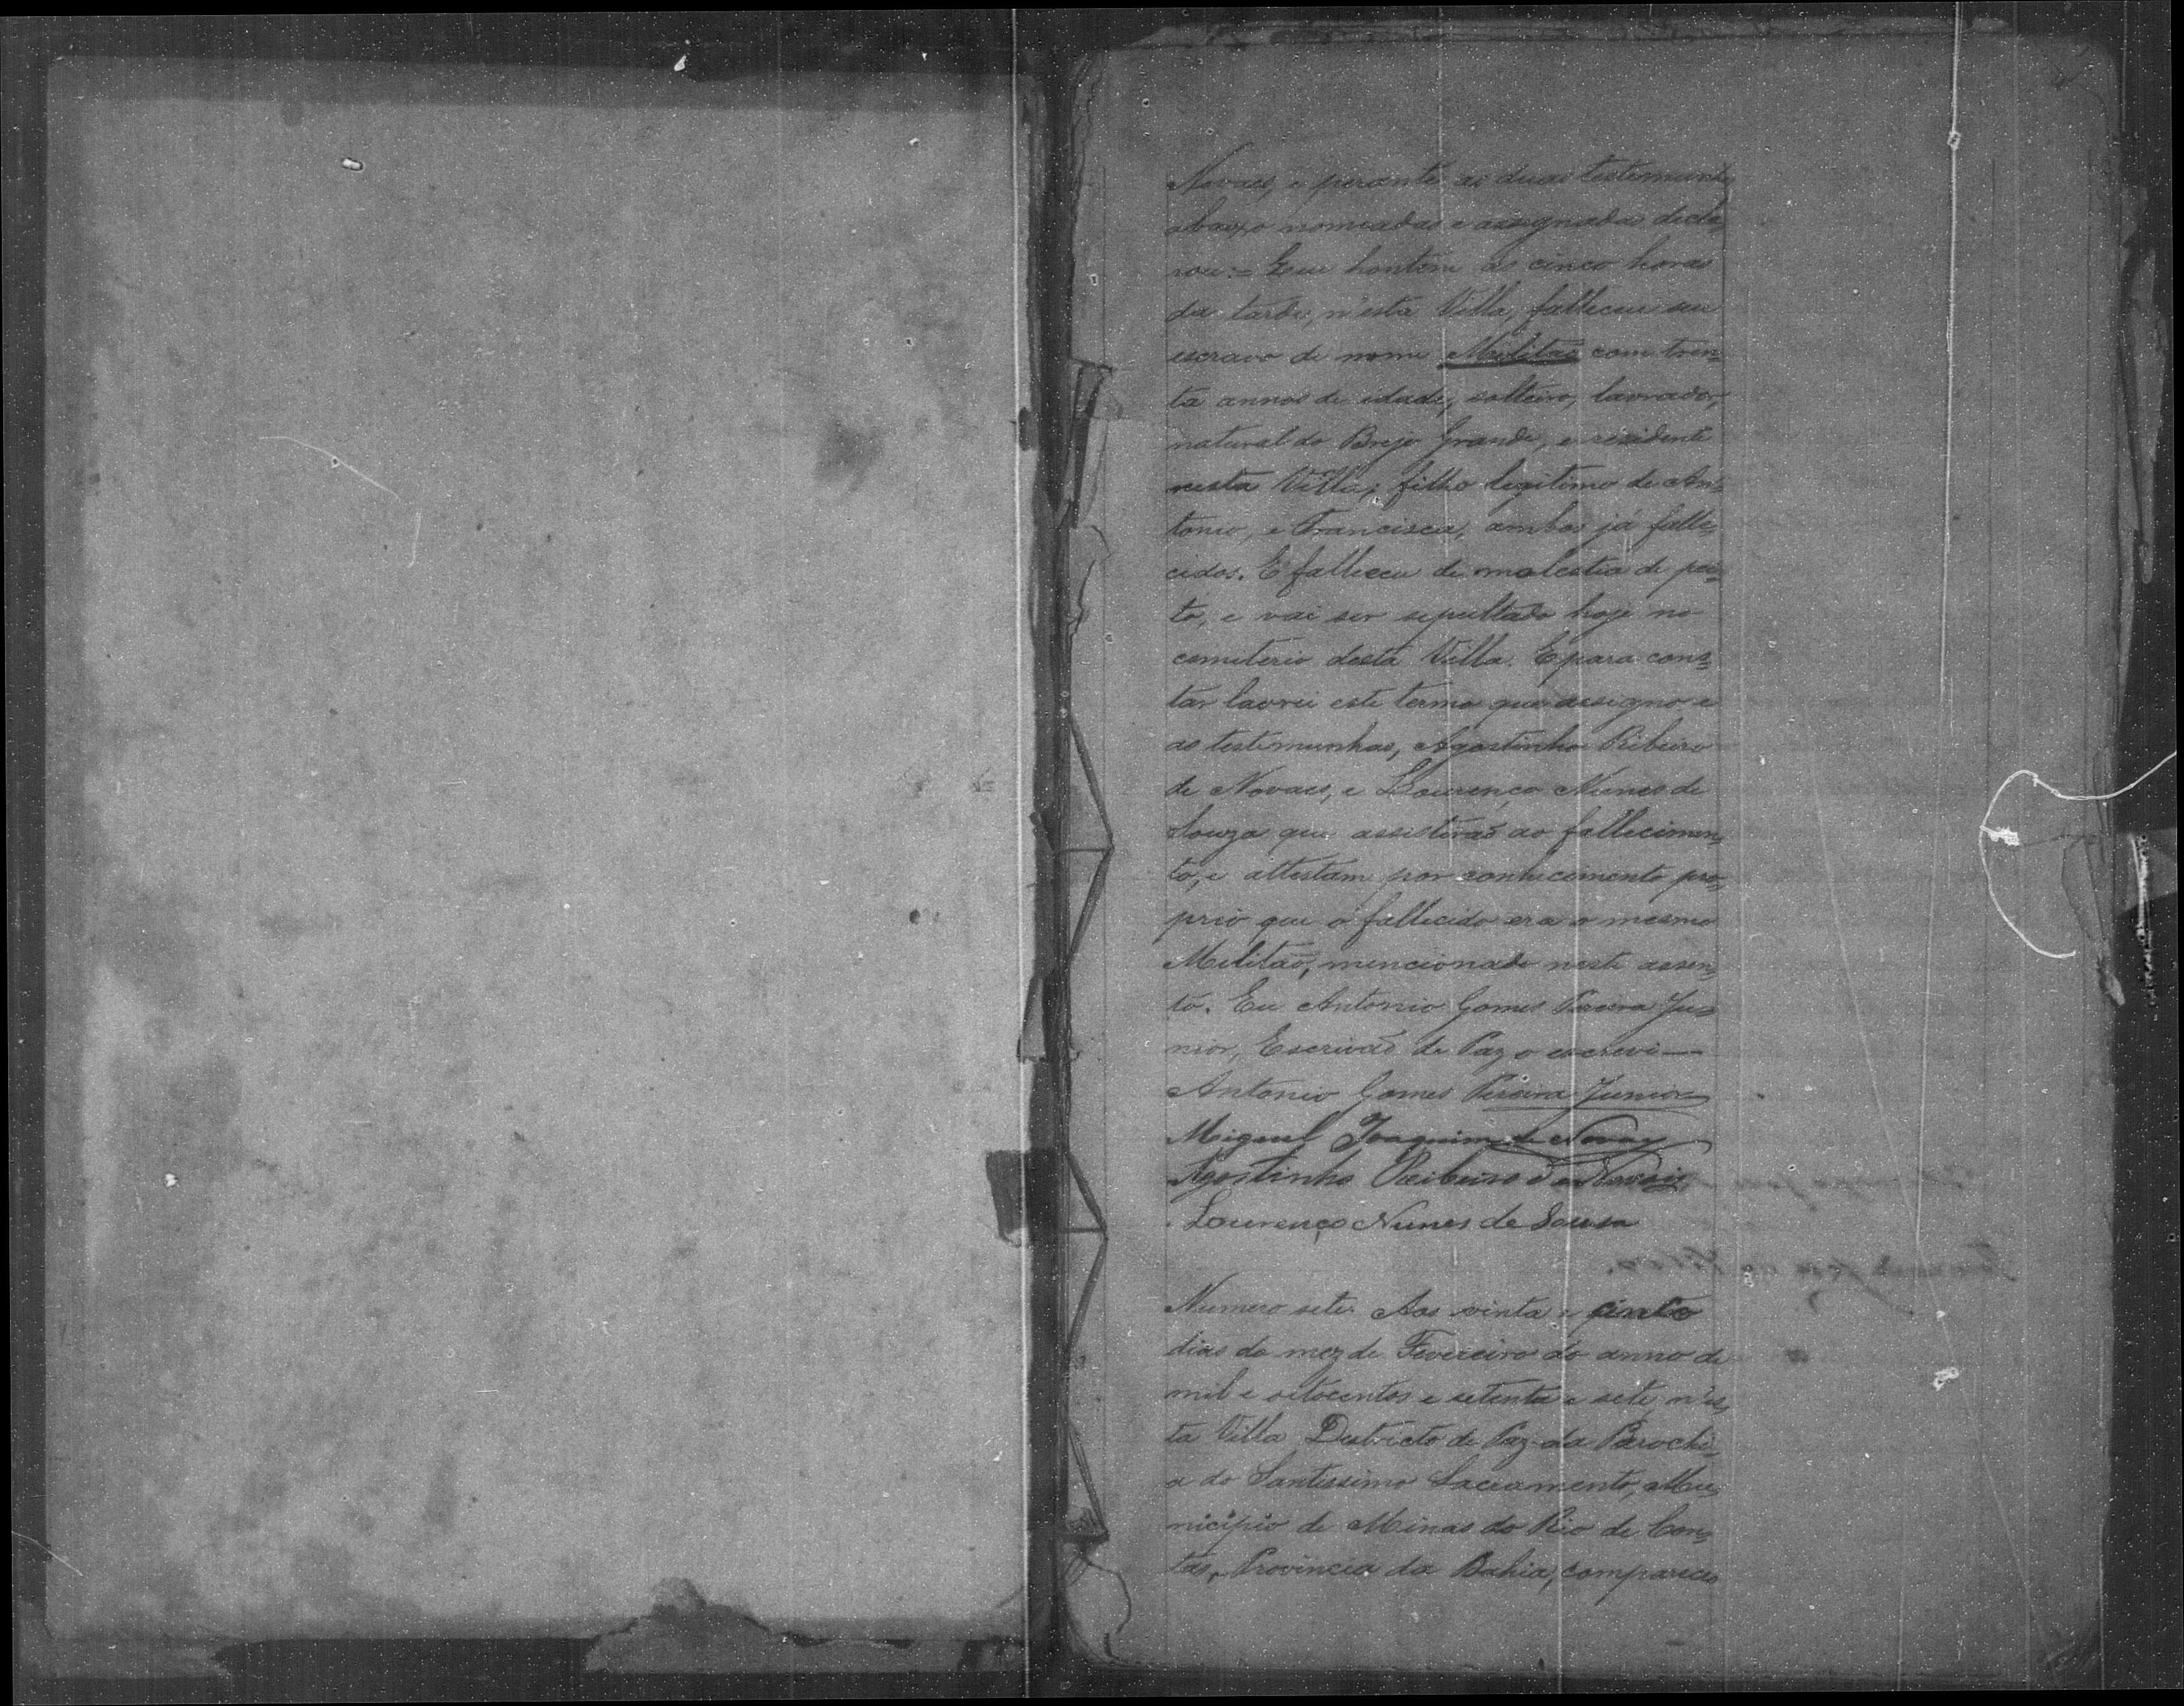 Novaes, e perante as duas testemunhas
abaixo nomeadas e assignadas decla,
rou:= Que hontem as cinco horas
da tarde, n'esta Villa, falleceu seu
escravo de nome Militão com trin=
ta annos de idade, solteiro, lavrador,
natural do Brejo Grande, e residente
nesta Villa; filho legitimo de An=
tonio, e Francisca, ambos já falle,
cidos. E falleceu de molestia de pei=
to, e vai ser sepultado hoje no
cemiterio desta Villa. E para cons=
tar lavrei este termo que assigno e
as testemunhas, Agostinho Ribeiro
de Novaes, e Lourenço Nunes de
Souza que assistirão ao fallecimen,
to, e attestam por conhecimento pro,
prio que o fallecido era o mesmo
Militão, mencionado neste assen,
to. Eu Antonio Gomes Pereira Ju=
nior, Escrivão de Paz o escrevi—
Antonio Gomes Pereira Junior
Miguel Joaquim de Novaes
Agostinho Ribeiro de Novais
Lourenço Nunes de Sousa
Numero sete. Aos vinte e cinco
dias do mez de Fevereiro do anno de
mil e oitocentos e setenta e sete, n'es,
ta Villa Districto de Paz da Parochi=
a do Santissimo Sacramento, Mu,
nicipio de Minas do Rio de Con,
tas, Provincia da Bahia, compareceo